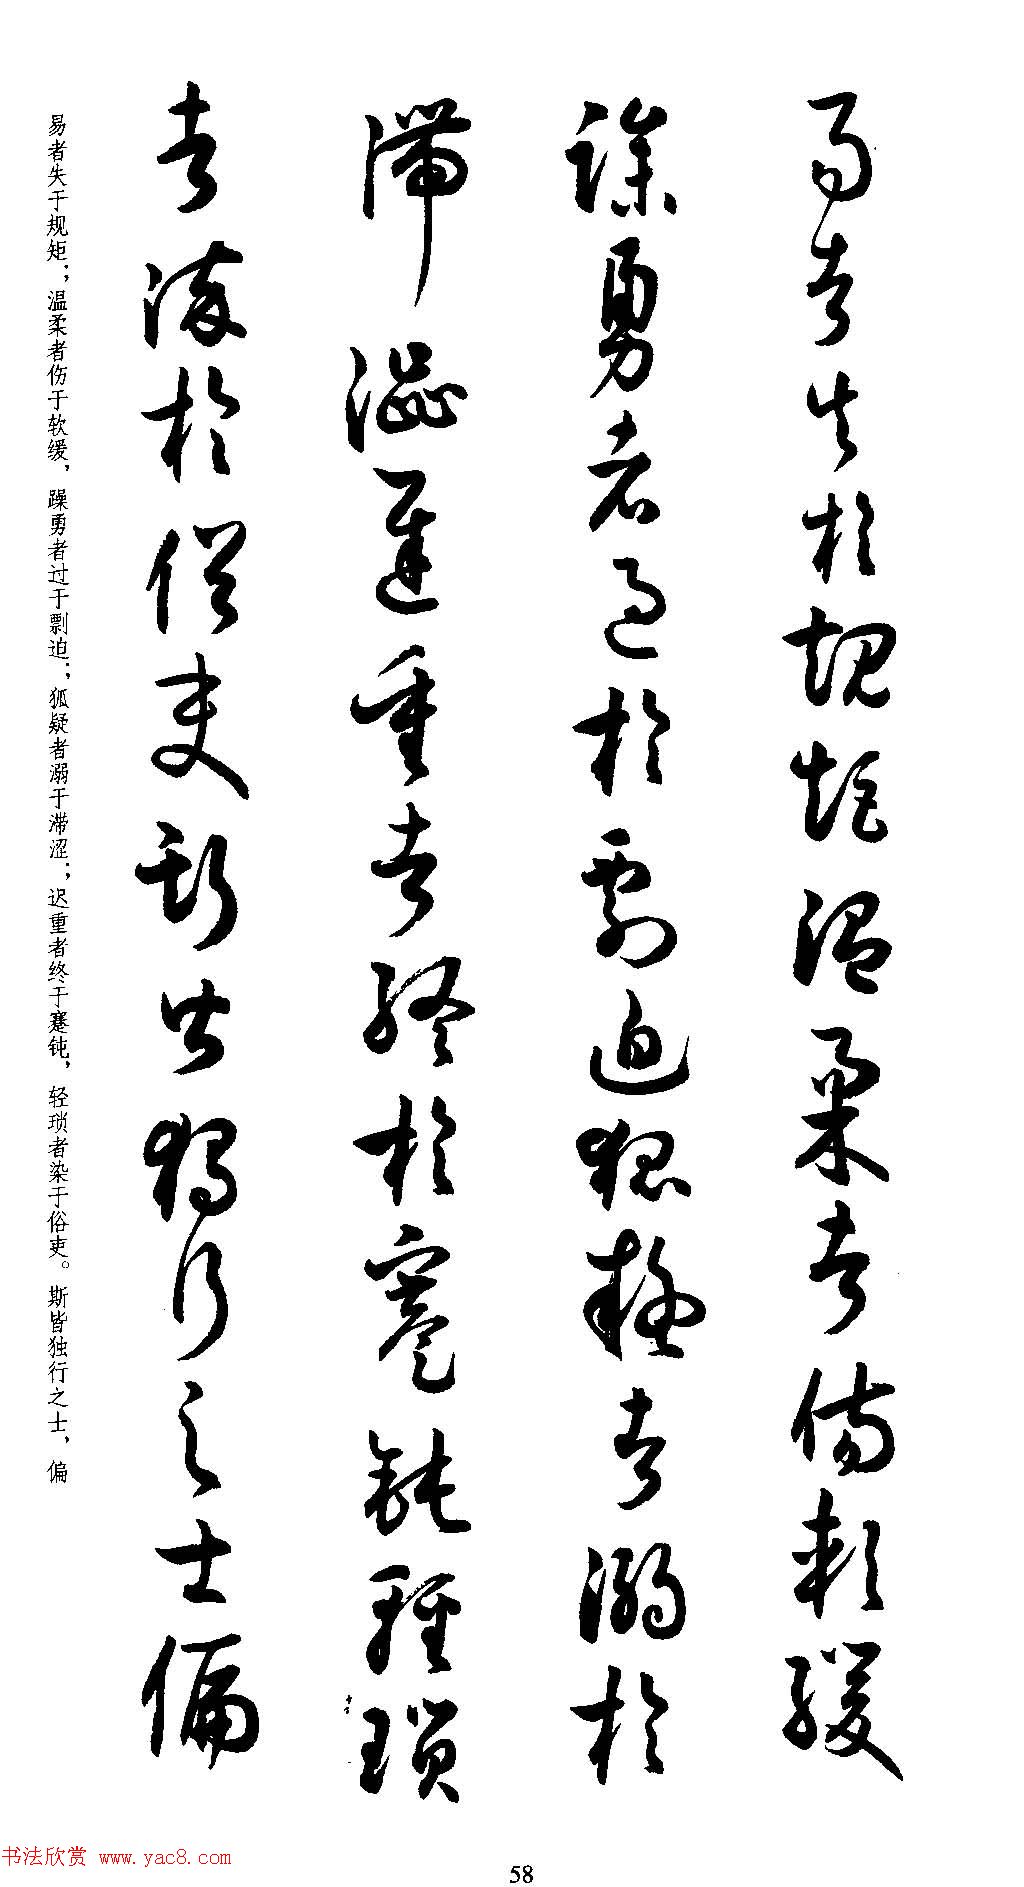 易者失於規矩溫柔者傷軟緩
躁勇者過於剽迫狐疑者溺於
滯澀遲重者終於蹇鈍輕瑣
者染於俗吏斯皆獨行之士偏
易者失于规矩；温柔者伤于软缓，躁勇者过于剽迫；狐疑者溺于滞涩；迟重者终于蹇钝，轻琐者染于俗吏。斯皆独行之士，偏
书法欣赏 www.yac8.com
58